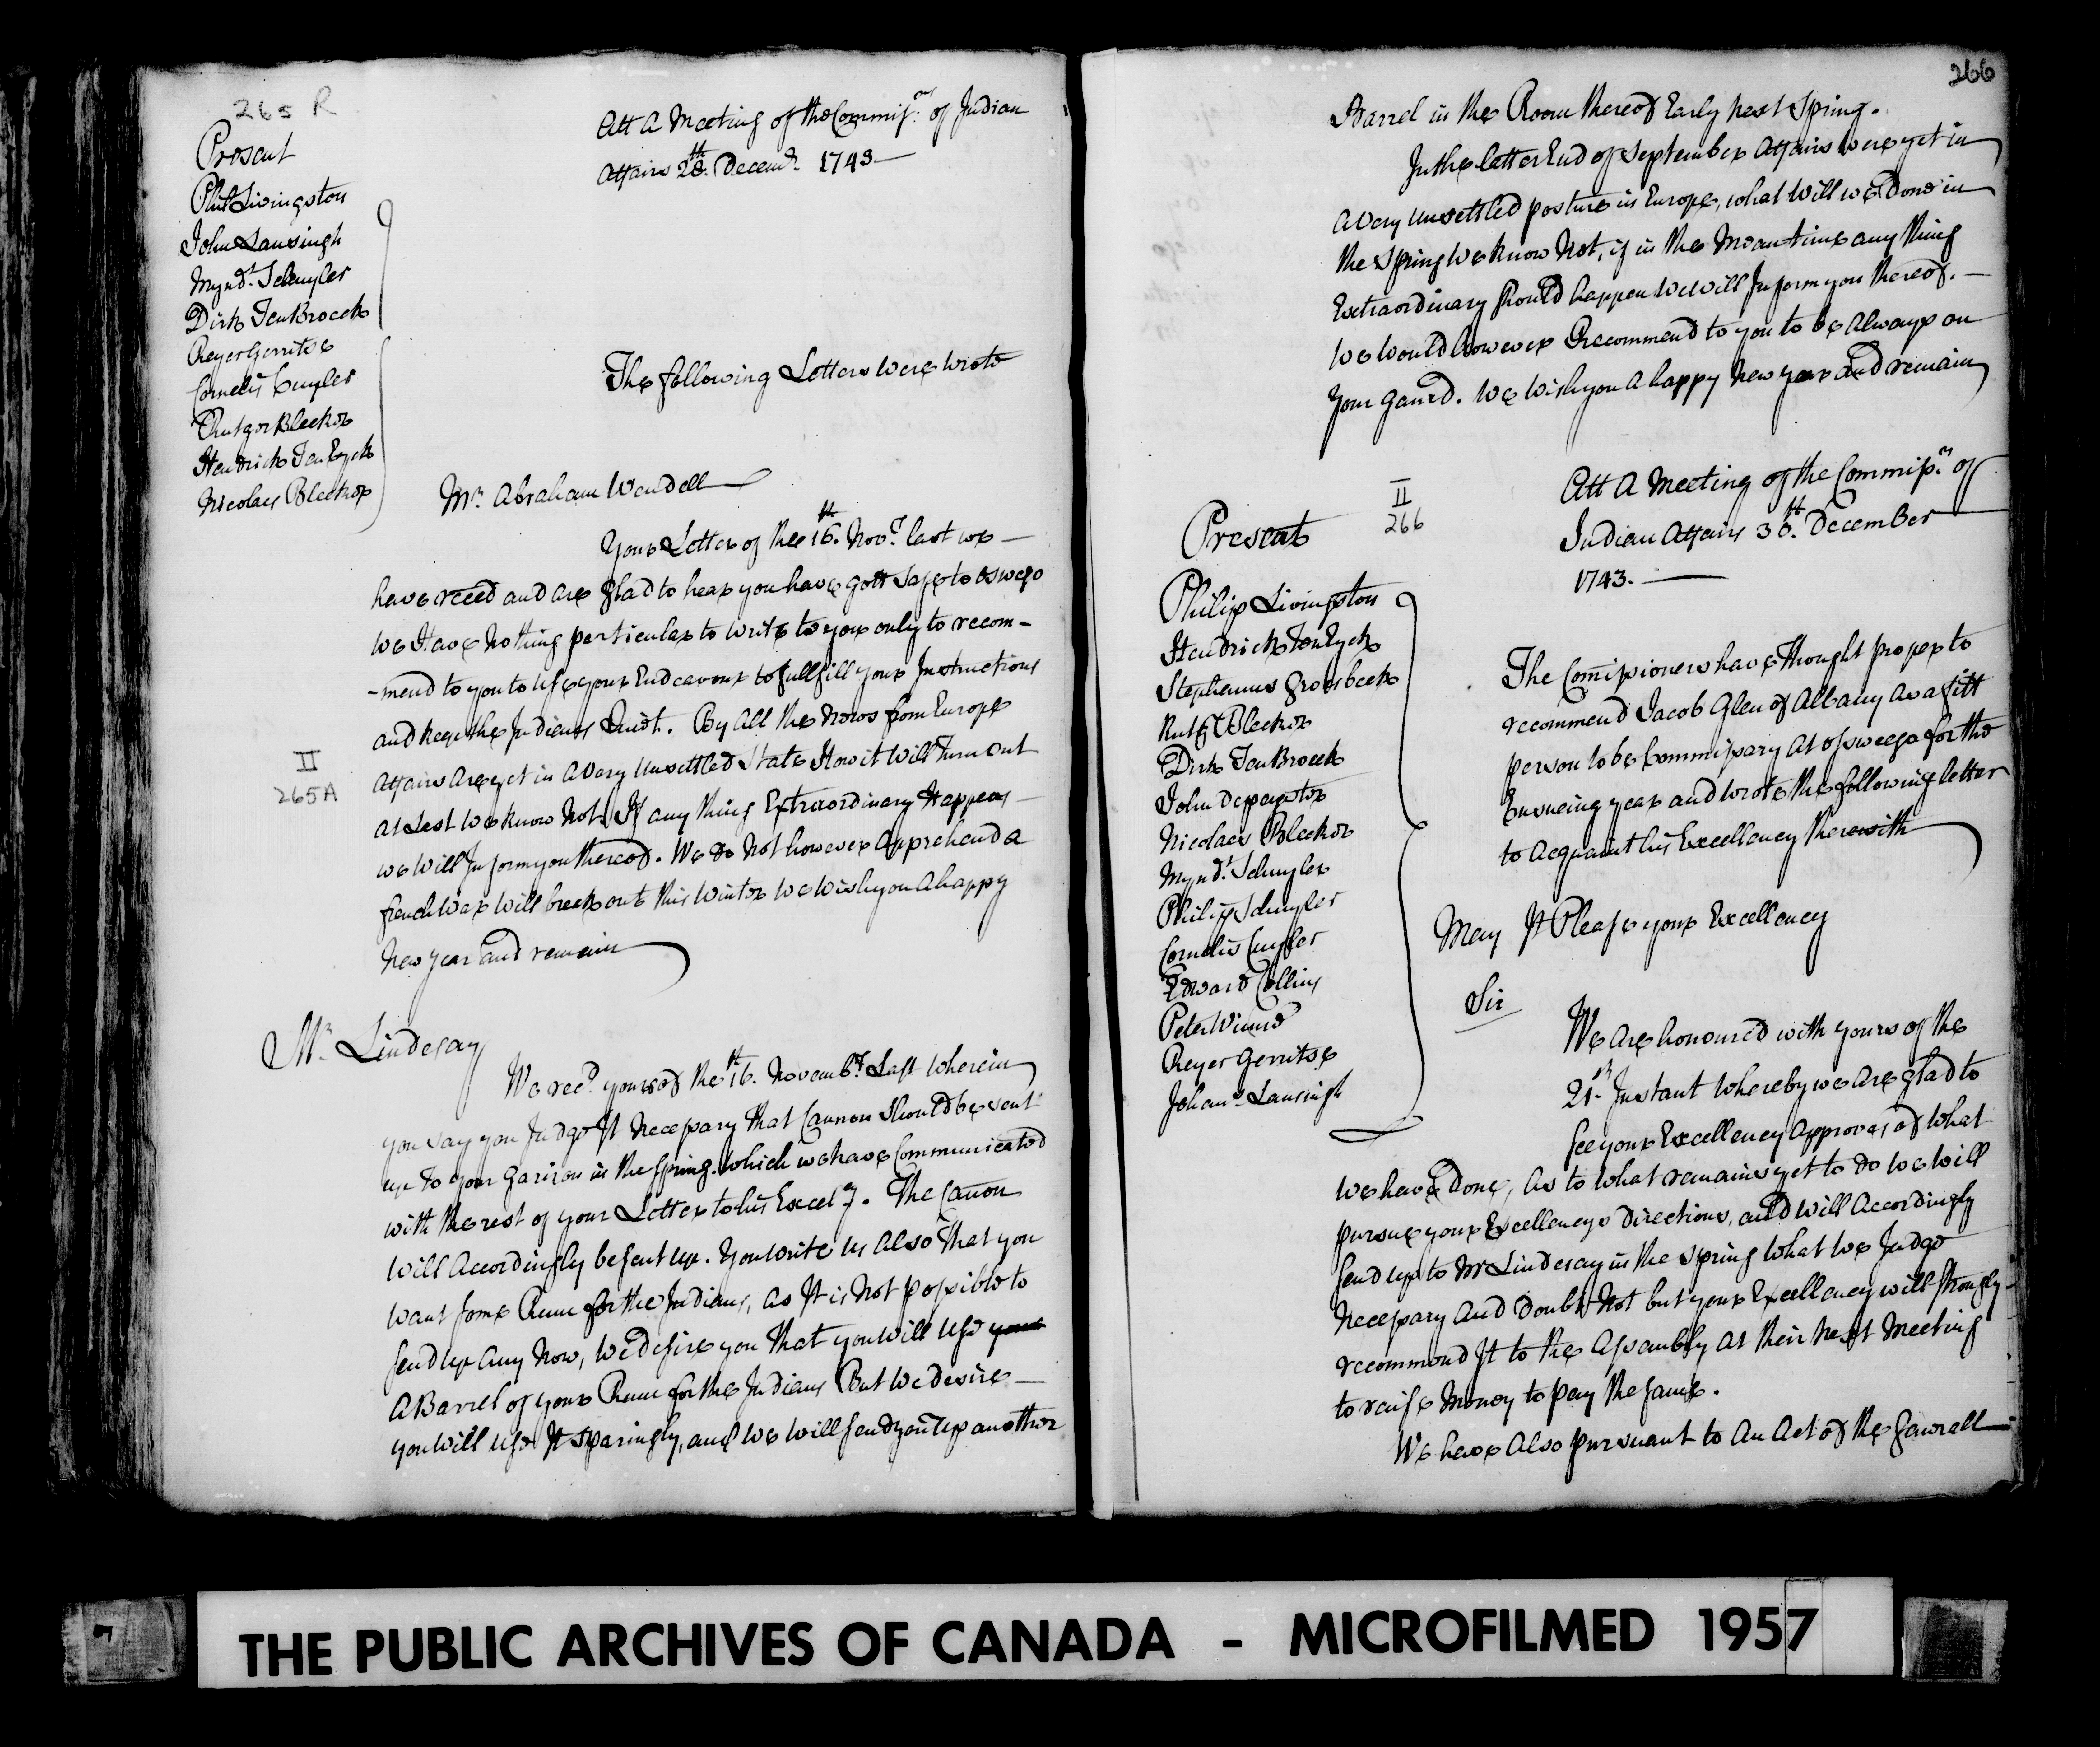 265 R
Present
Phil Livingston
John Lansingh
Mynd.t Schuyler
Dirk Ten Broeck
Reyer Gerritse
Cornelis Cuyler
Rutger Bleeker
Hendrick Ten Eyck
Nicolaes Bleeker
Att A Meeting of the Commiss.rs of Indian
Affairs 28.th Decem.r 1743
The following Letters Were Wrote
Mr. Abraham Wendell
Your Letter of the 16.th Nov.r last we
have reced and are glad to hear you have gott Safe to Oswego
We Have Nothing particular to write to you only to recom-
-mend to you to use your Endeavour to fullfill your Instructions
and keep the Indians Quiet. By All the News from Europe
II
265A
Affairs Are yet in A Very Unsettled State How it Will Turn Out
At Lest We know Not If any thing Extraordinary Happens
we Will Inform you thereof. We do Not however Apprehend a
french War Will breek out this Winter We Wish you A happy
New year and remain
Mr. Lindesay
We rec.d yours of the 16.th Novemb.r Last Wherein
you say you Judge It Necessary that Cannon Should be sent
up to your Garison in the Spring. which we have Communicated
with the rest of your Letter to his Excel.y. The Canon
Will Accordingly be sent up. You write us also that you
Want some Rum for the Indians, As It is Not possible to
send up Any Now, We desire you that you Will Use your
A Barrel of your Rum for the Indians But We desire
you Will Use It Sparingly, and We Will send you up another
266
Barrel in the Room thereof Early next Spring.
In the letter End of September Affairs were yet in
A Very Unsettled posture in Europe, what Will we Done in
the Spring We know Not, if in the Mean time any thing
Extraordinary should happen We Will Inform you thereof.
We Would however Recommend to you to be Always on
Your Gaurd. We Wish you A happy New year and remain
II
266
Att A Meeting of the Commiss.rs of
Indian Affairs 30.th December
1743.
Present
Philip Livingston
Hendrick Ten Eyck
Stephanus Groesbeek
Rutg.r Bleeker
Dirk Ten Broeck
John Depeyster
Nicolaes Bleeker
Mynd.t Schuyler
Philip Schuyler
Cornelis Cuyler
Edward Collins
Peter Winne
Reyer Gerritse
Johan.s Lansingh
The Comissioners have Thought proper to
recommend Jacob Glen of Albany as a fitt
person to be Commissary At Osswego for the
Ensueing year and wrote the following letter
to Acquaint his Excellency therewith
May It Please your Excellency
Sir
We Are honoured with yours of the
21.th Instant Whereby we Are glad to
see your Excellency Approves of What
We have Done, As to What remains yet to do We Will
pursue your Excellencys Directions, and Will Accordingly
send up to Mr Lindesay in the Spring What We Judge
Necessary And doubt Not but your Excellency will strongly
recommend It to the Assembly At their Next Meeting
to raise Money to pay the same.
We have Also pursuant to An Act of the Genrall
THE PUBLIC ARCHIVES OF CANADA - MICROFILMED 1957